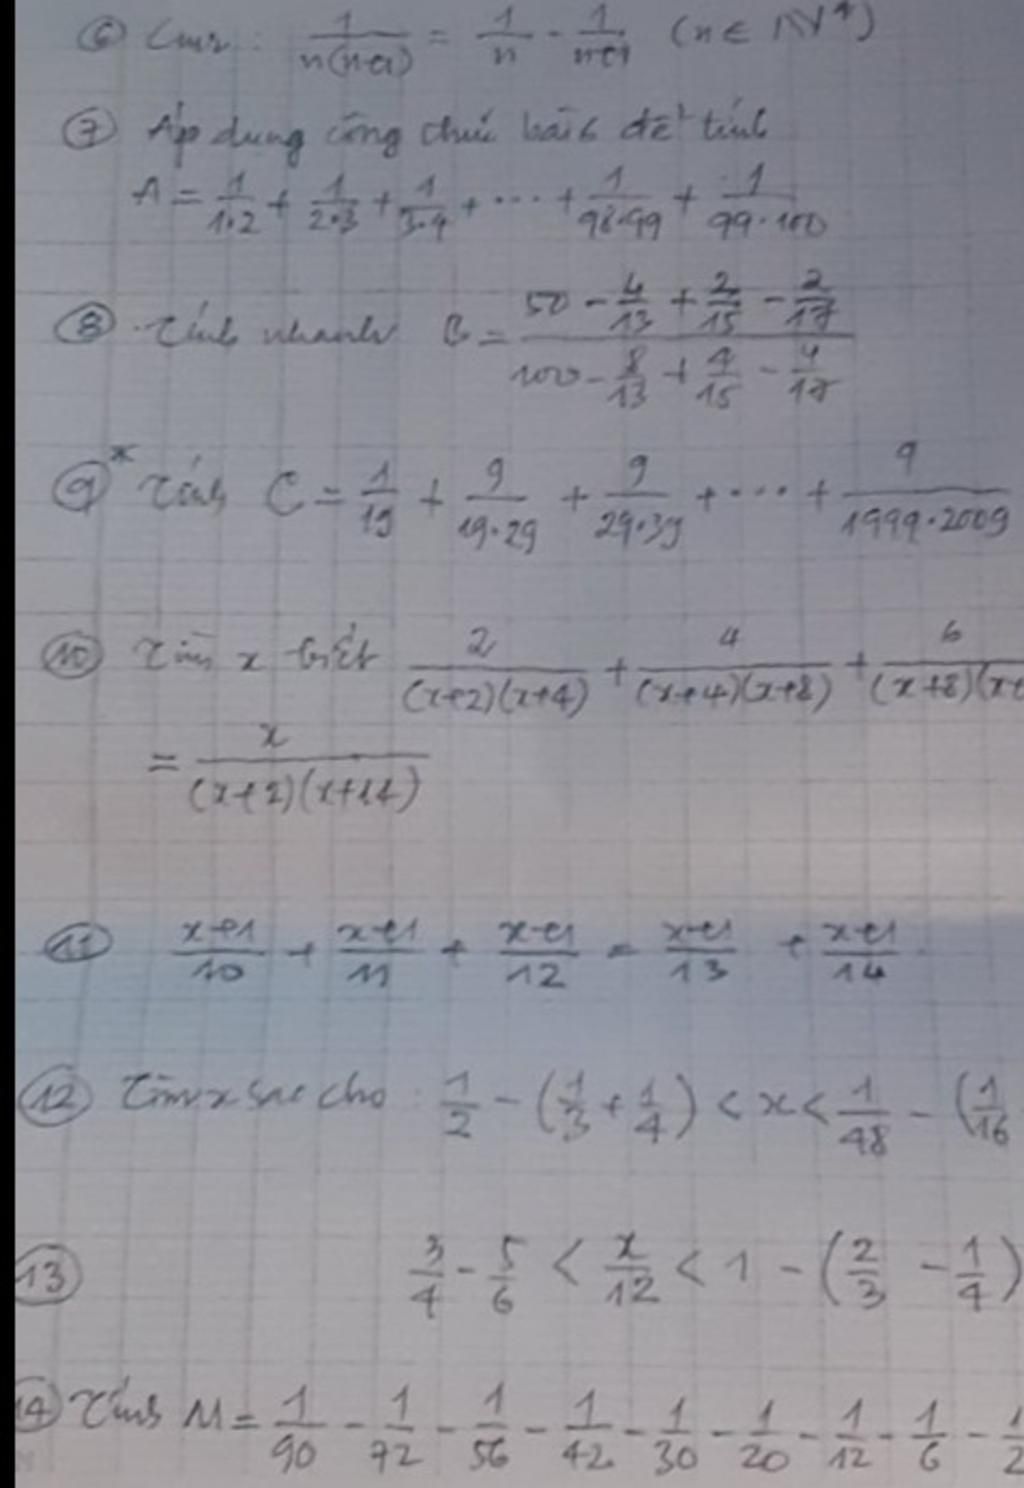 ⑥ Cmr: 1/n(n+1) = 1/n - 1/n+1 (n ∈ N*)
⑦ Áp dụng công thức bài 6 để tính
A = 1/1.2 + 1/2.3 + 1/3.4 + ... + 1/98.99 + 1/99.100
⑧ Tính nhanh B = (50 - 4/13 + 2/15 - 2/17)/(100 - 8/13 + 4/15 - 4/17)
⑨* Tính C = 1/19 + 9/19.29 + 9/29.39 + ... + 9/1999.2009
⑩ Tìm x biết 2/(x+2)(x+4) + 4/(x+4)(x+8) + 6/(x+8)(x+
= x/(x+2)(x+14)
⑪ x+1/10 + x+1/11 + x+1/12 = x+1/13 + x+1/14
⑫ Tìm x sao cho: 1/2 - (1/3 + 1/4) < x < 1/48 - (1/16
⑬ 3/4 - 5/6 < x/12 < 1 - (2/3 - 1/4)
⑭ Tính M = 1/90 - 1/72 - 1/56 - 1/42 - 1/30 - 1/20 - 1/12 - 1/6 - 1/2